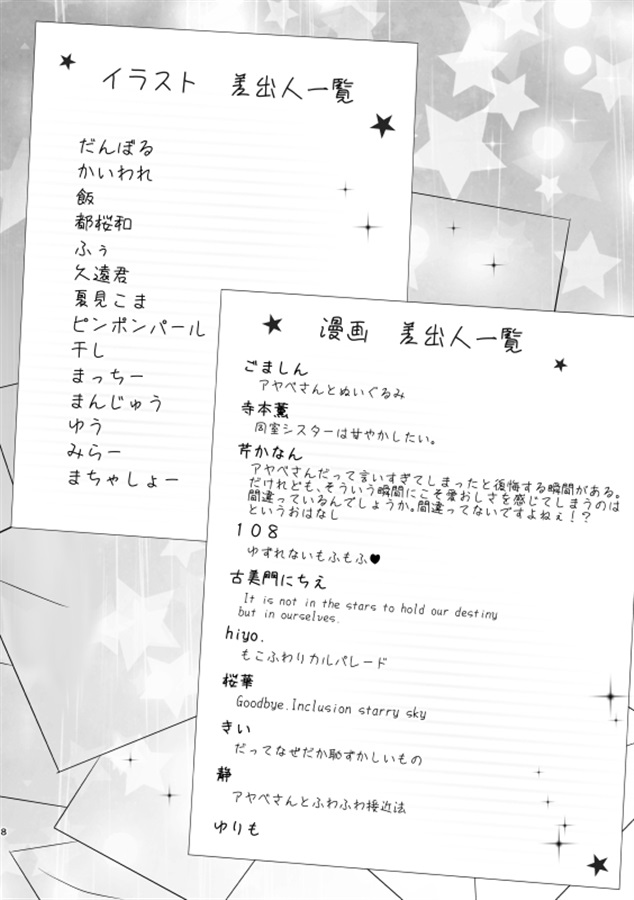 イラスト 差出人一覧
だんぼる
かいわれ
飯
都桜和
ふぅ
久遠君
夏見こま
ピンポンパール
干し
まっちー
まんじゅう
ゆう
みらー
まちゃしょー
漫画 差出人一覧
ごましん
アヤベさんとぬいぐるみ
寺本薫
同室シスターは甘やかしたい。
芹かなん
アヤベさんだって言いすぎてしまったと後悔する瞬間がある。
だけれども、そういう瞬間にこそ愛おしさを感じてしまうのは
間違っているんでしょうか。間違ってないですよねぇ！？
というおはなし
108
ゆずれないもふもふ♥
古美門にちえ
It is not in the stars to hold our destiny
but in ourselves.
hiyo.
もこふわりカルパレード
桜華
Goodbye.Inclusion starry sky
きい
だってなぜだか恥ずかしいもの
静
アヤベさんとふわふわ接近法
ゆりも
8